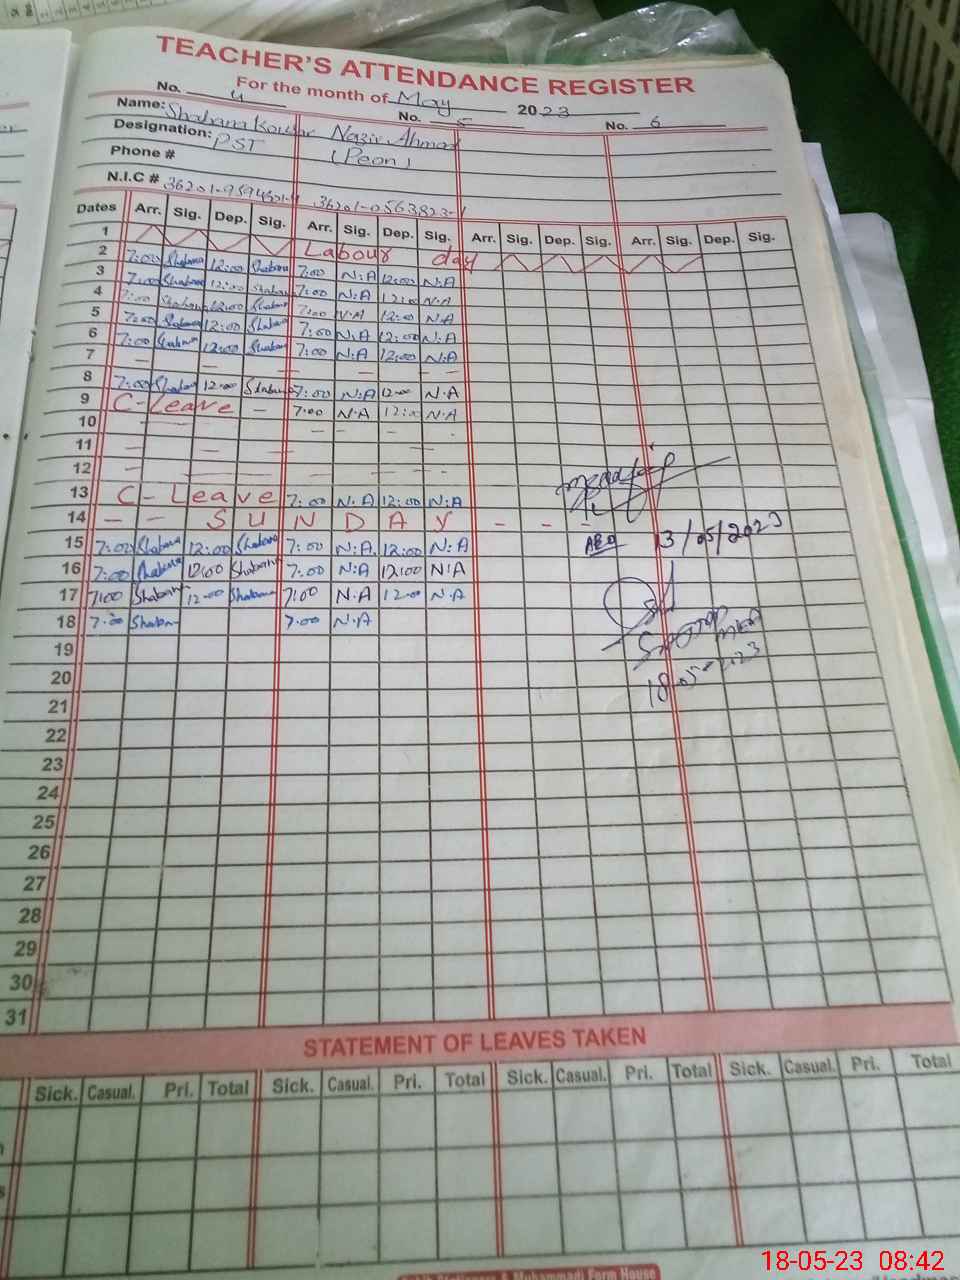 TEACHER'S ATTENDANCE REGISTER
For the month of May 2023
No. 4 No. 5 No. 6
Name: Shabana Kousar Nazir Ahmad
Designation: PST (Peon)
Phone #
N.I.C #
Dates Arr. Sig. Dep. Sig. Arr. Sig. Dep. Sig. Arr. Sig. Dep. Sig. Arr. Sig. Dep. Sig.
1 Labour day
2 7:00 Shabana 12:00 Shabana 7:00 N.A 12:00 N.A
3 7:00 Shabana 12:00 Shabana 7:00 N.A 12:00 N.A
4 7:00 Shabana 12:00 Shabana 7:00 N.A 12:00 N.A
5 7:00 Shabana 12:00 Shabana 7:00 N.A 12:00 N.A
6 7:00 Shabana 12:00 Shabana 7:00 N.A 12:00 N.A
7 — — — — — —
8 7:00 Shabana 12:00 Shabana 7:00 N.A 12:00 N.A
9 C-Leave — 7:00 N.A 12:00 N.A
10
11
12
13 C-Leave 7:00 N.A 12:00 N.A
14 — — SUNDAY - - -
15 7:00 Shabana 12:00 Shabana 7:00 N.A. 12:00 N.A
16 7:00 Shabana 12:00 Shabana 7:00 N.A 12:00 N.A
17 7:00 Shabana 12:00 Shabana 7:00 N.A 12:00 N.A
18 7:00 Shabana 7:00 N.A
AEO 13/05/2023
MEA
18-05-2023
19
20
21
22
23
24
25
26
27
28
29
30
31
STATEMENT OF LEAVES TAKEN
Sick. Casual. Pri. Total Sick. Casual. Pri. Total Sick. Casual. Pri. Total Sick. Casual. Pri. Total
18-05-23 08:42